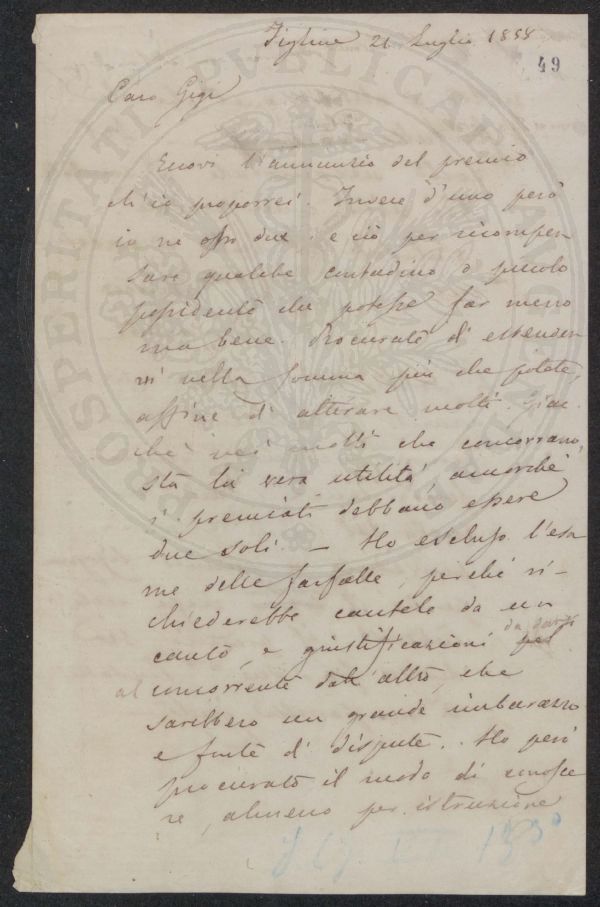 Figline 21 Luglio 1858
49
Caro Gigi
Eccovi l'annunzio del premio
ch'io proporrei. Invece d'uno però
io ne offro due: e ciò per ricompen
sare qualche contadino o piccolo
possidente che potesse far meno
ma bene. Procurate di estender
vi nella somma più che potete,
affine di allettare molti. Giac
chè nei molti che concorrano,
sta la vera utilità, ancorchè
i premiati debbano essere
due soli. — Ho escluso l'esa
me delle farfalle, perchè ri-
chiederebbe cautele da un
canto, e giustificazioni pel
da darsi
al concorrente dall'altro, che
sarebbero un grande imbarazzo
e fonte di dispute. Ho però
procurato il modo di conosce
re, almeno per istruzione
PROSPERITATI PUBLICAE AUGENDAE